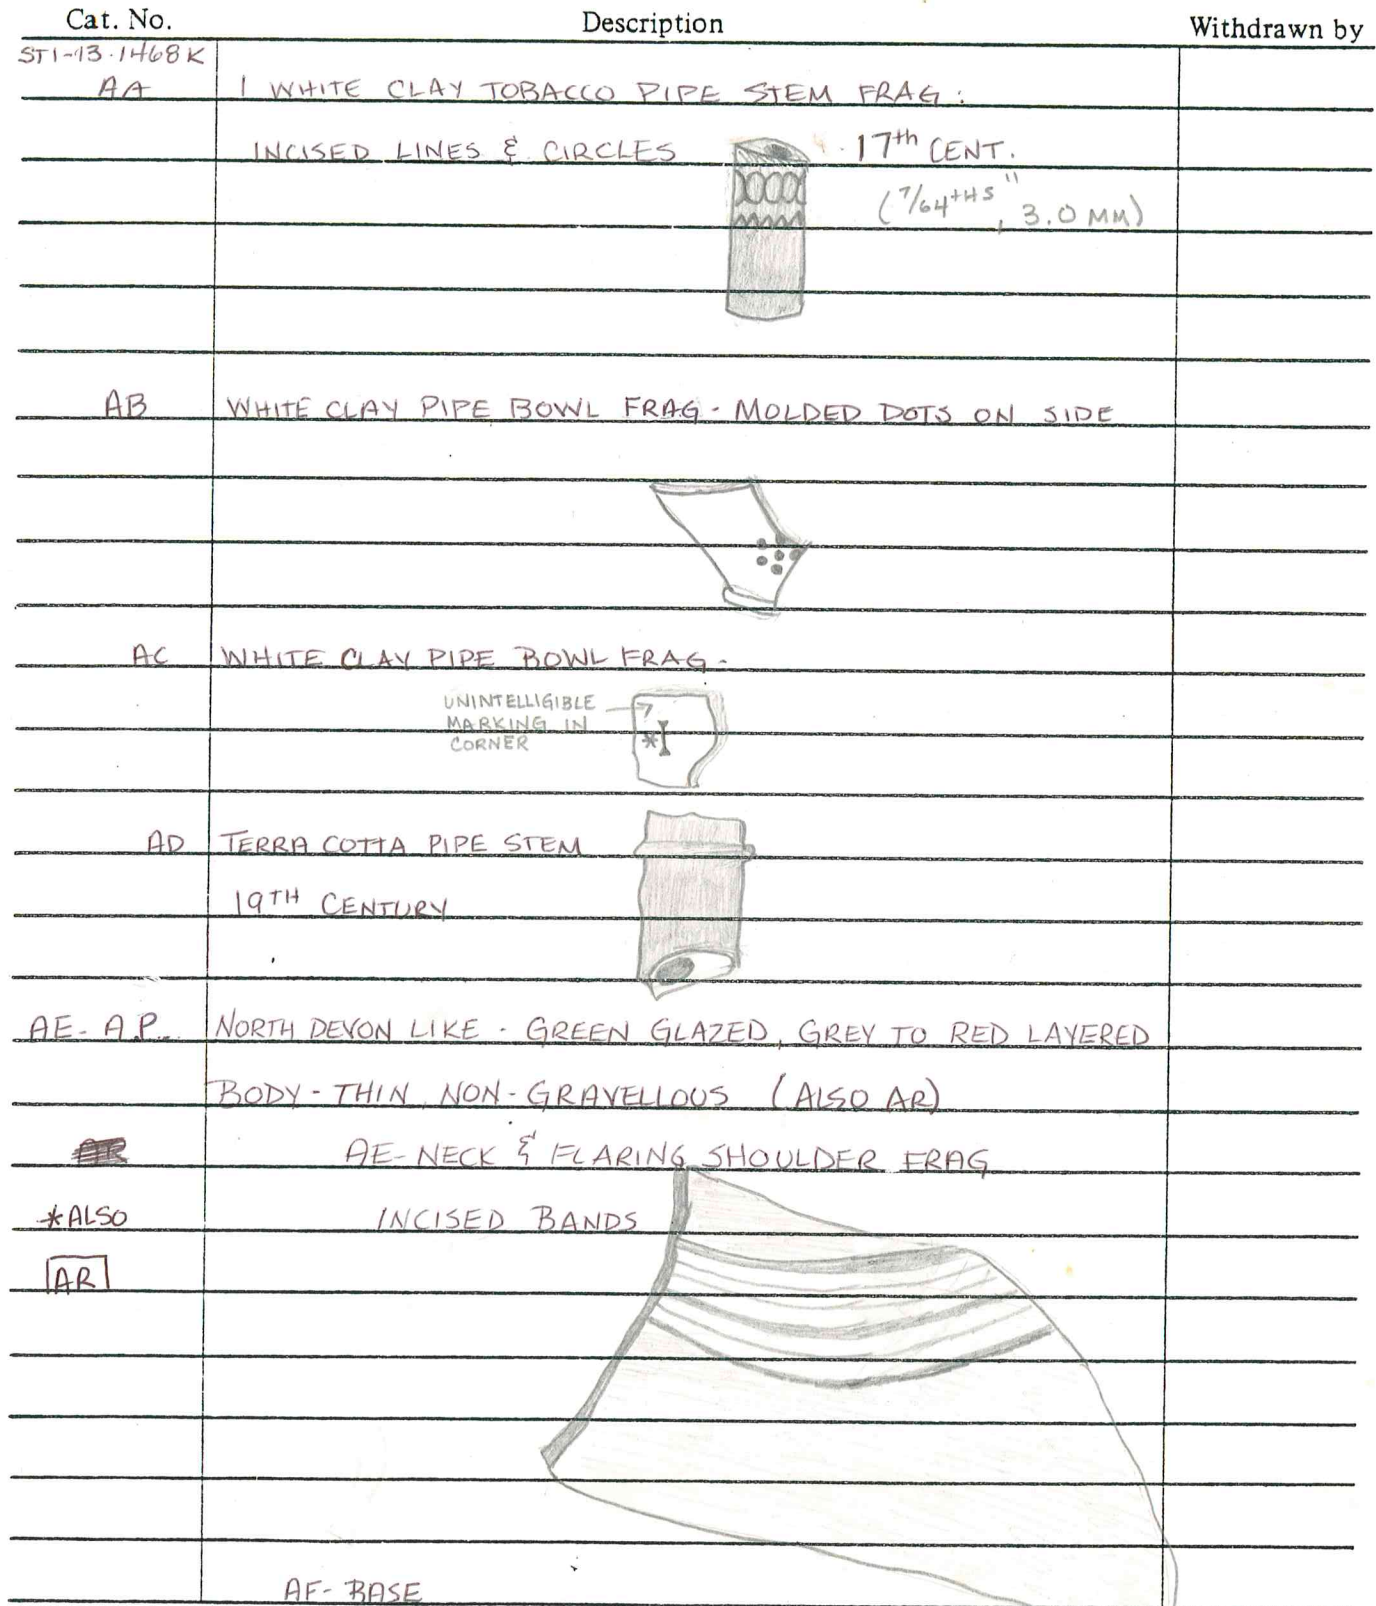 Cat. No. Description Withdrawn by
ST1-13-1468K
AA 1 WHITE CLAY TOBACCO PIPE STEM FRAG:
INCISED LINES & CIRCLES 17th CENT.
(7/64THS", 3.0 MM)
AB WHITE CLAY PIPE BOWL FRAG - MOLDED DOTS ON SIDE
AC WHITE CLAY PIPE BOWL FRAG-
UNINTELLIGIBLE
MARKING IN
CORNER
*I
AD TERRA COTTA PIPE STEM
19TH CENTURY
AE- A.P. NORTH DEVON LIKE - GREEN GLAZED, GREY TO RED LAYERED
BODY - THIN, NON-GRAVELLOUS (ALSO AR)
AE-NECK & FLARING SHOULDER FRAG
*ALSO INCISED BANDS
AR
AF- BASE